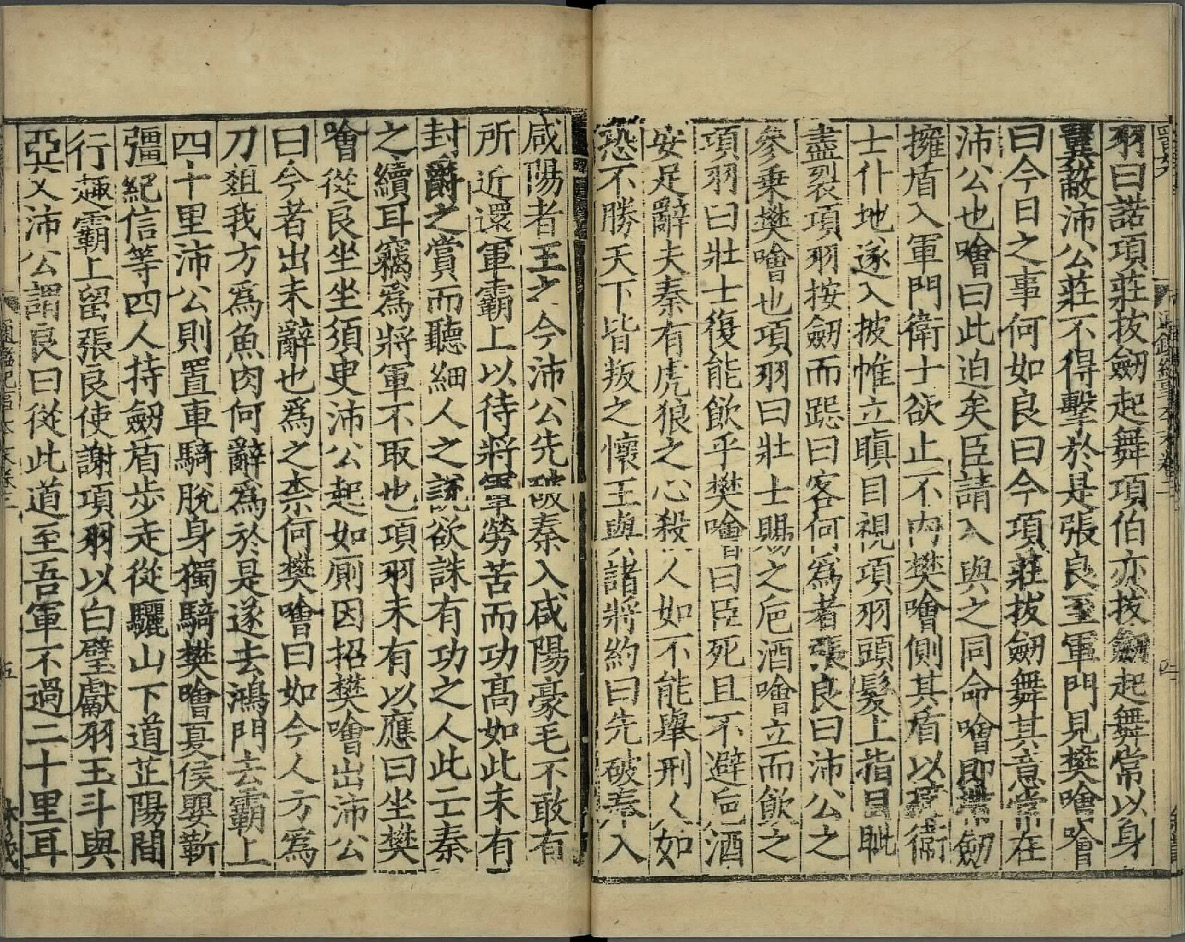 羽曰諾項莊拔劒起舞項伯亦拔劒起舞常以身
翼蔽沛公莊不得擊於是張良至軍門見樊噲噲
曰今日之事何如良曰今項莊拔劒舞其意常在
沛公也噲曰此迫矣臣請入與之同命噲即帶劒
擁盾入軍門衛士欲止不内樊噲側其盾以撞衛
士仆地遂入披帷立瞋目視項羽頭髮上指目眦
盡裂項羽按劒而跽曰客何爲者張良曰沛公之
參乘樊噲也項羽曰壯士賜之巵酒噲立而飲之
項羽曰壯士復能飲乎樊噲曰臣死且不避巵酒
安足辭夫秦有虎狼之心殺人如不能舉刑人如
恐不勝天下皆叛之懷王與諸將約曰先破秦入
咸陽者王之今沛公先破秦入咸陽豪毛不敢有
所近還軍霸上以待將軍勞苦而功髙如此未有
封爵之賞而聽細人之說欲誅有功之人此亡秦
之續耳竊爲將軍不取也項羽未有以應曰坐樊
噲從良坐坐須臾沛公起如厠因招樊噲出沛公
曰今者出未辭也爲之柰何樊噲曰如今人方爲
刀爼我方爲魚肉何辭爲於是遂去鴻門去霸上
四十里沛公則置車騎脫身獨騎樊噲夏侯嬰靳
彊紀信等四人持劒盾步走從驪山下道芷陽間
行趣霸上留張良使謝項羽以白璧獻羽玉斗與
亞父沛公謂良曰從此道至吾軍不過二十里耳
通鑑紀事本末卷二
五